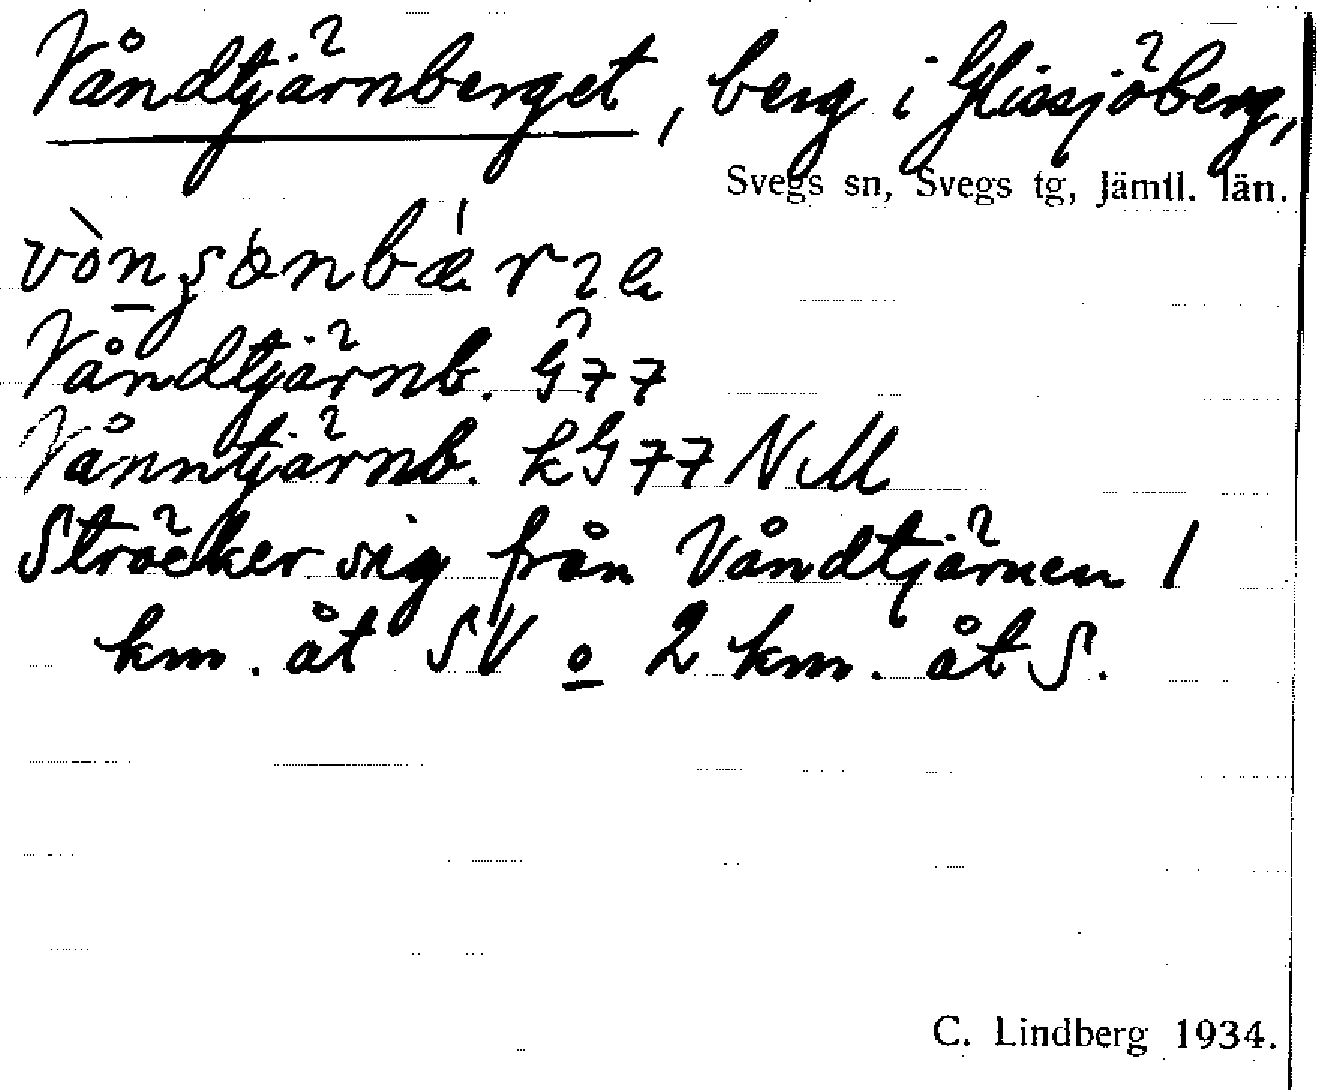 Våndtjärnberget, berg i Glissjöberg,
Svegs sn, Svegs tg, Jämtl. län.
Våndtjärnb. G 77
Vånntjärnb. kG 77 NM
Sträcker sig från Våndtjärnen 1
km. åt SV o 2 km. åt S.
C. Lindberg 1934.